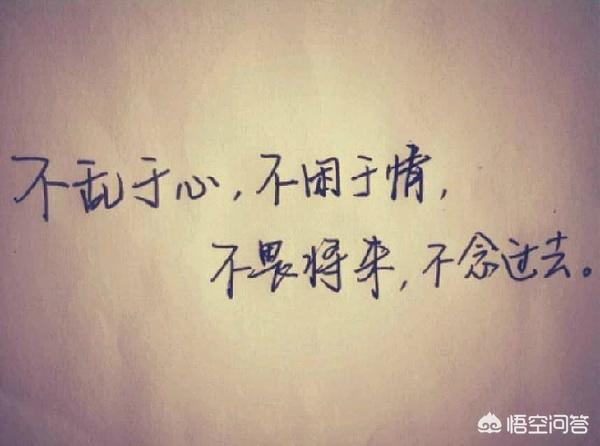 不乱于心，不困于情，
不畏将来，不念过去。
悟空问答